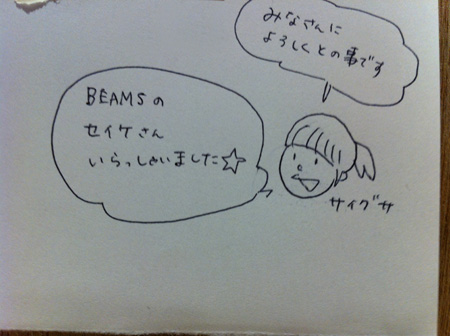 みなさんに
よろしくとの事です
BEAMSの
セイケさん
いらっしゃいました☆
サイグサ